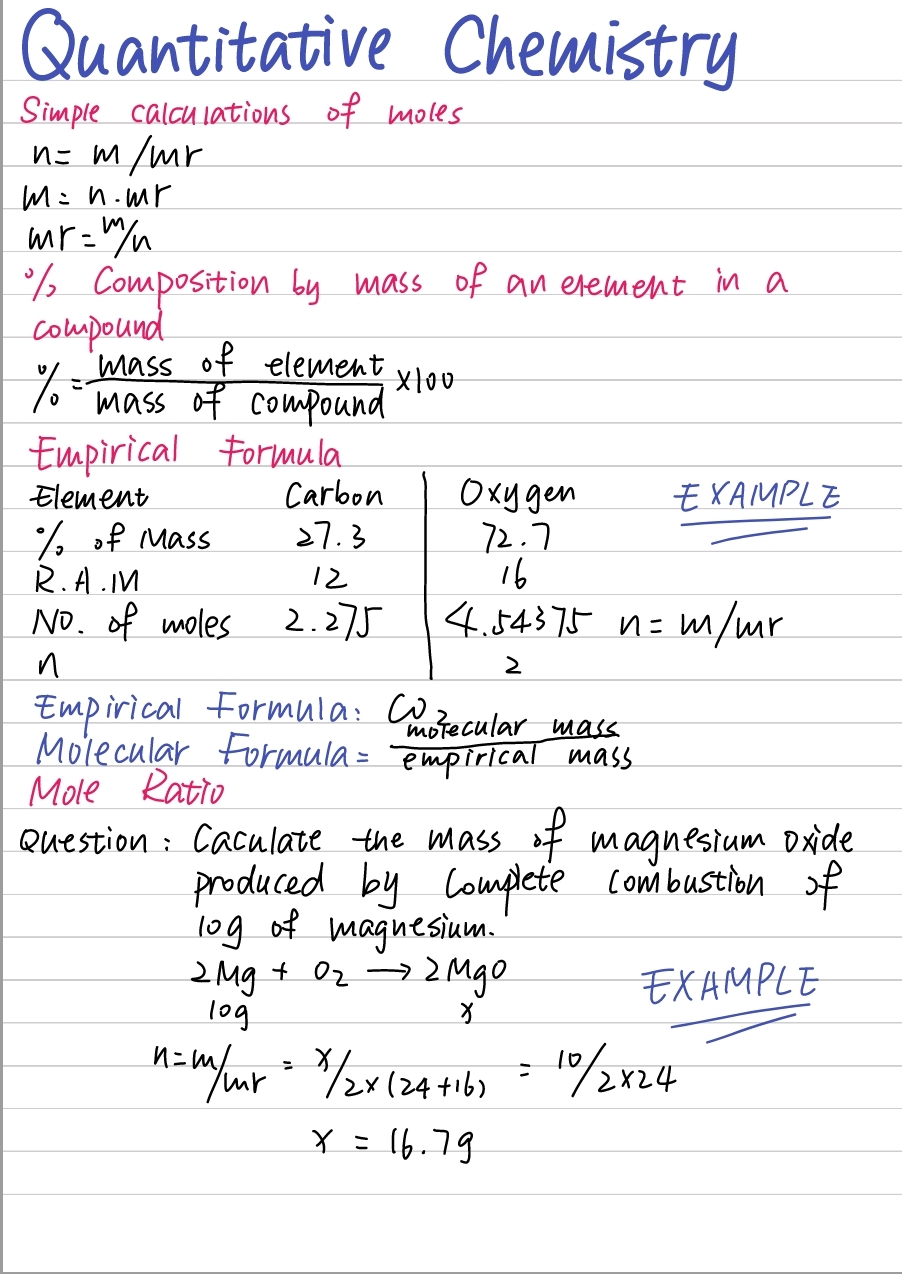 Quantitative Chemistry
Simple calculations of moles
n= m/mr
m= n.mr
mr= m/n
% Composition by mass of an element in a
compound
% = mass of element / mass of compound ×100
Empirical Formula
Element Carbon Oxygen EXAMPLE
% of Mass 27.3 72.7
R.A.M 12 16
NO. of moles 2.275 4.54375 n= m/mr
n 2
Empirical Formula: CO2
Molecular Formula = molecular mass / empirical mass
Mole Ratio
Question: Caculate the mass of magnesium oxide
produced by complete combustion of
10g of magnesium.
2Mg + O2 → 2MgO EXAMPLE
10g x
n=m/mr = x/2×(24+16) = 10/2×24
x = 16.7g